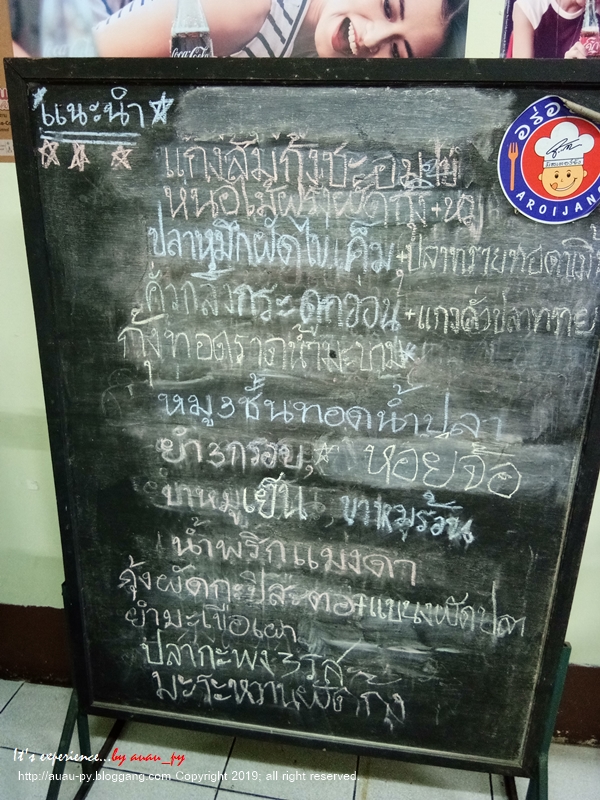 Coca-Cola
แนะนำ
อร่อ
AROIJANG
แกงส้มกุ้งชะอมชุบ
หน่อไม้ฝรั่งผัดกุ้ง+หมู
ปลาหมึกผัดไข่เค็ม+ปลาทรายทอดขมิ้น
คั่วกลิ้งกระดูกอ่อน+แกงคั่วปลาทราย
กุ้งทอดราดน้ำมะขาม
หมู3ชั้นทอดน้ำปลา
ยำ3กรอบ, หอยจ้อ
ขาหมูเย็น ขาหมูร้อน
น้ำพริกแมงดา
กุ้งผัดกะปิสะตอ+แขนงผัดปลา
ยำมะเขือเผา
ปลากะพง3รส
มะระหวานผัดกุ้ง
It's experience...by auau_py
http://auau-py.bloggang.com Copyright 2019; all right reserved.